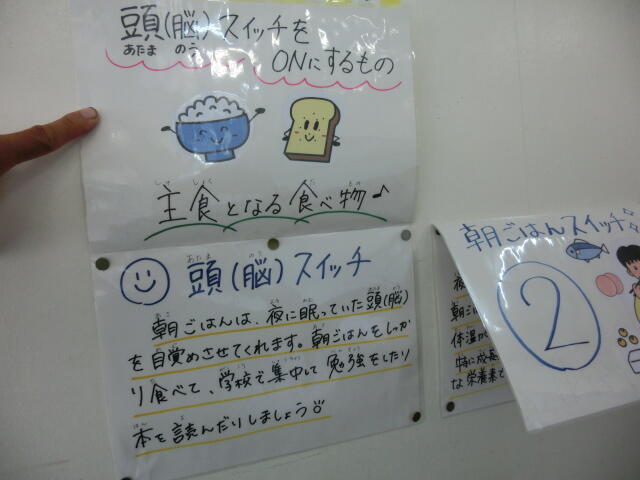 頭(脳)スイッチを
あたま のう
ONにするもの
しゅ しょく た もの
主食となる食べ物♪
あたま のう
頭(脳)スイッチ
朝ごはんは、夜に眠っていた頭(脳)
を目覚めさせてくれます。朝ごはんをしっか
り食べて、学校で集中して勉強をしたり
本を読んだりしましょう
朝ごはんスイッチ
2
朝
体温が
特に成長
な栄養素